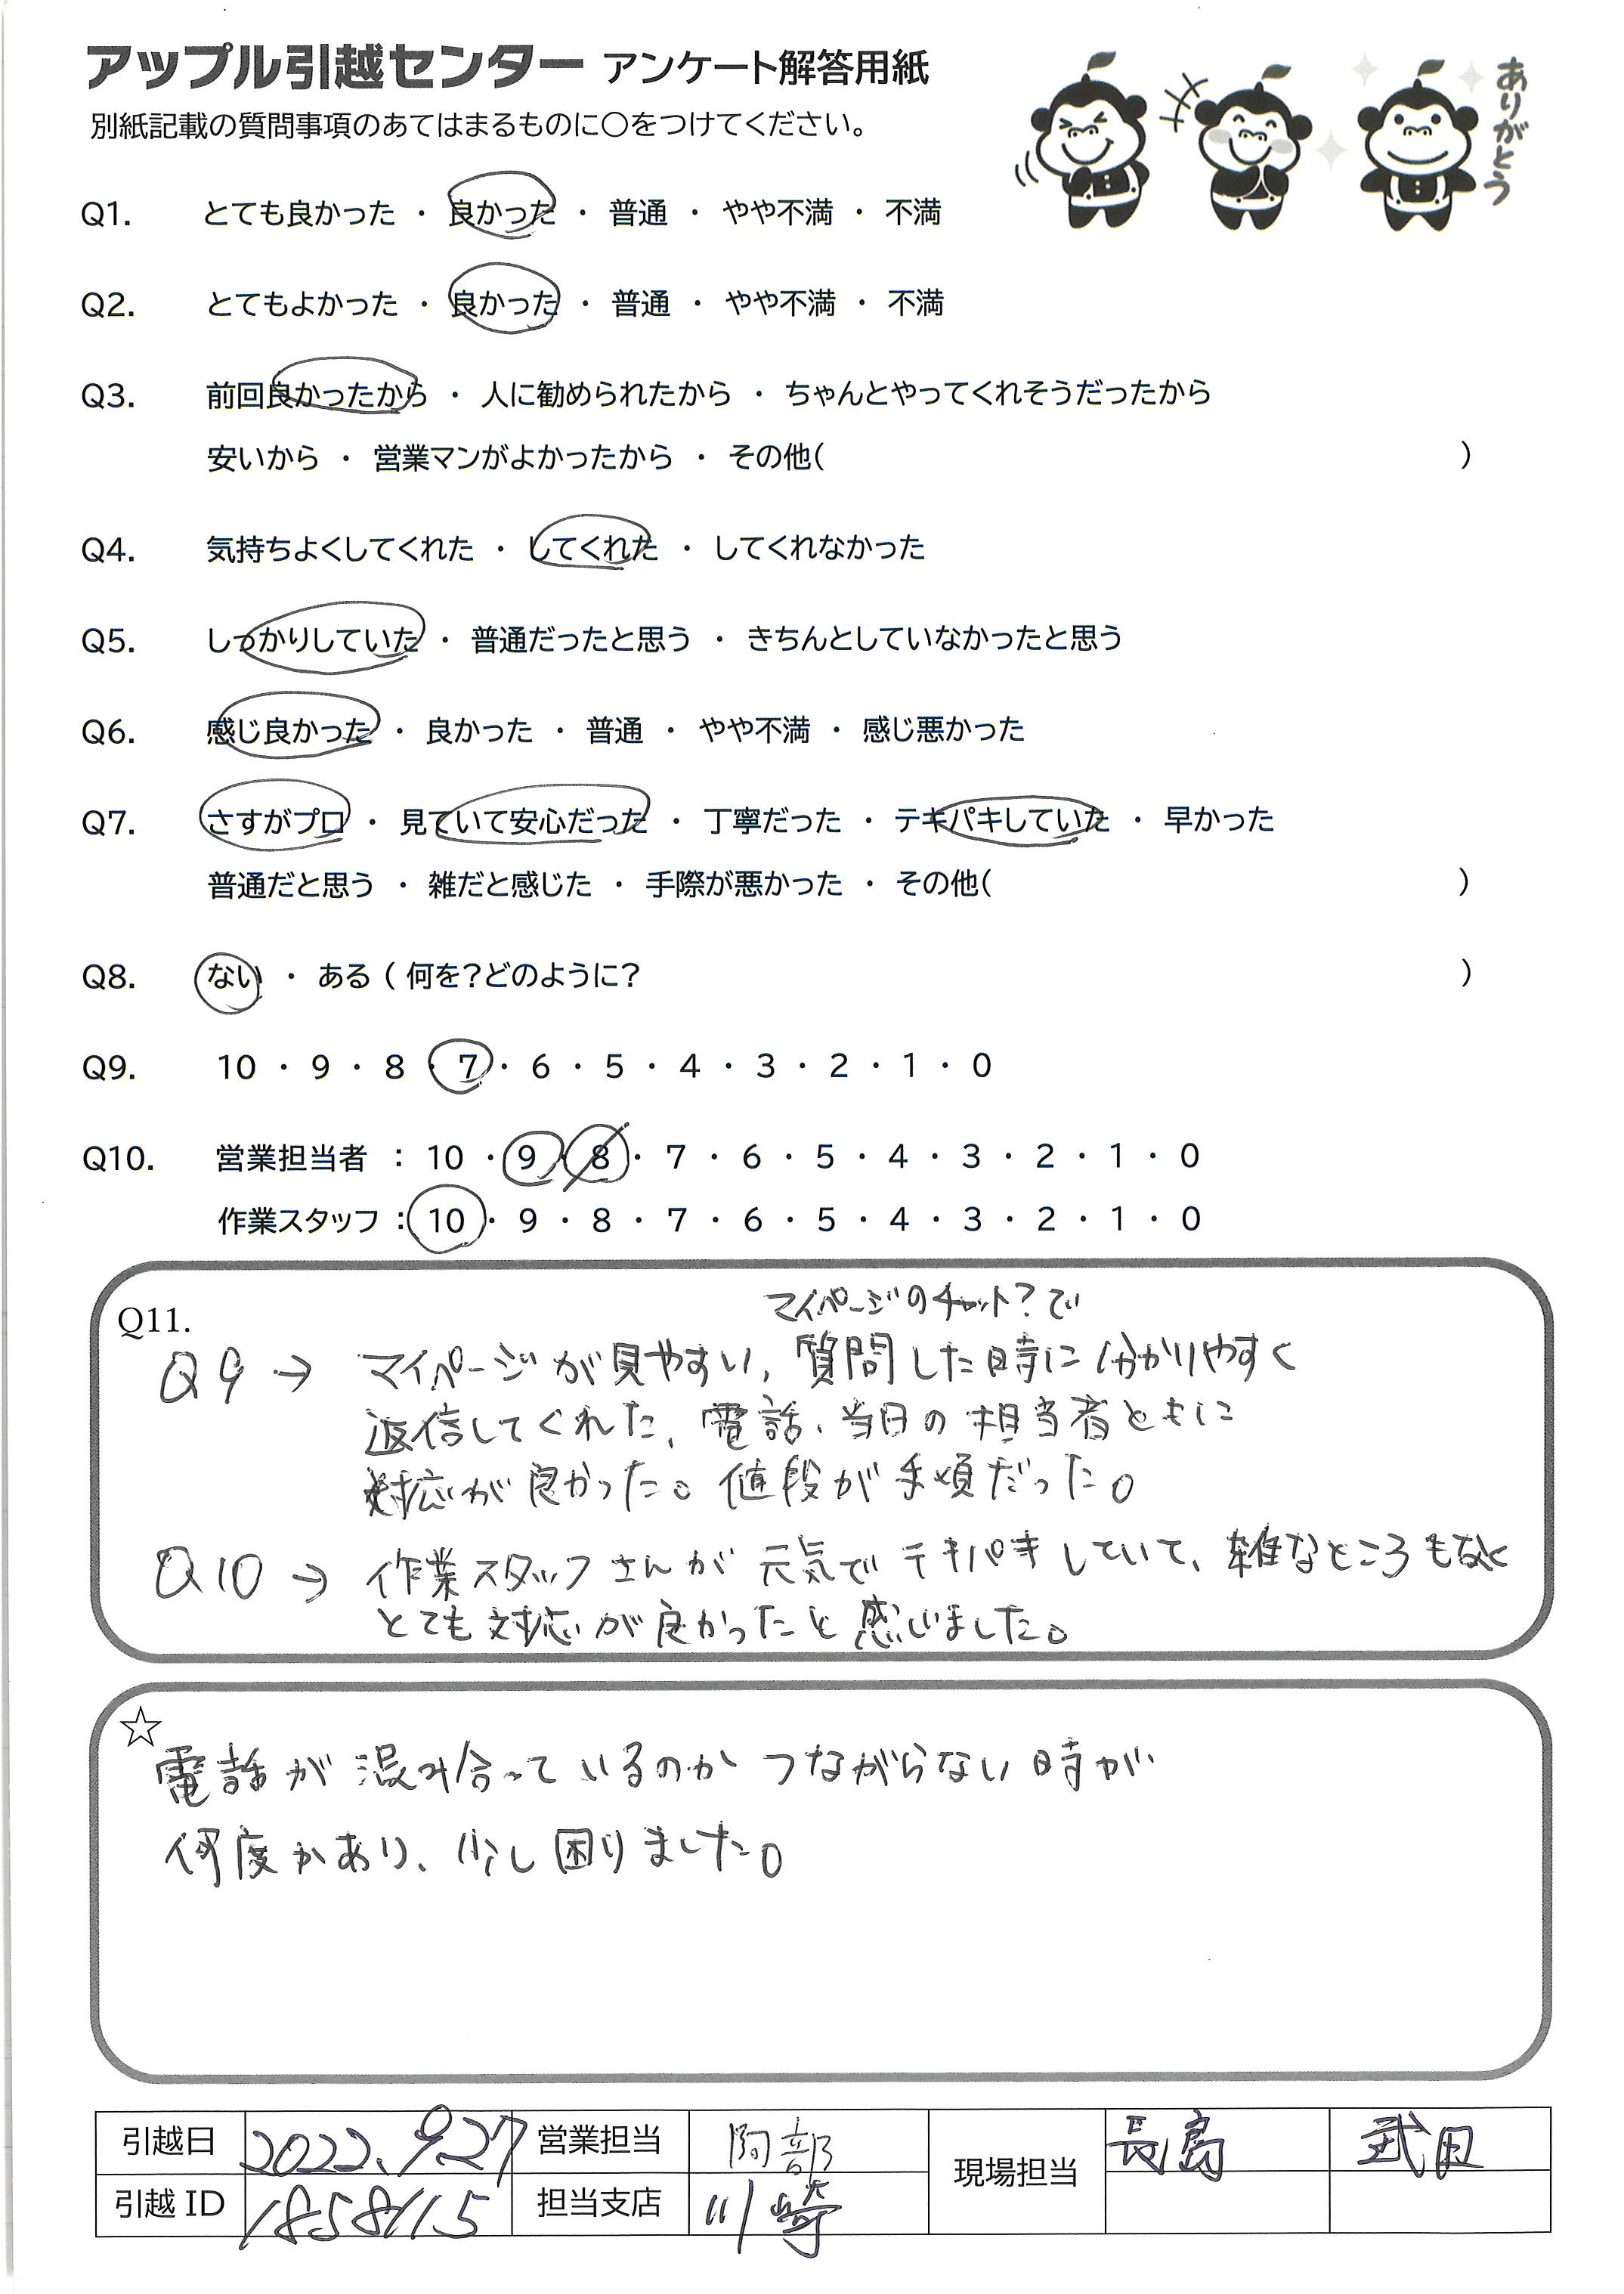 アップル引越センター アンケート解答用紙
別紙記載の質問事項のあてはまるものに〇をつけてください。
ありがとう
Q1. とても良かった ・ 良かった ・ 普通 ・ やや不満 ・ 不満
Q2. とてもよかった ・ 良かった ・ 普通 ・ やや不満 ・ 不満
Q3. 前回良かったから ・ 人に勧められたから ・ ちゃんとやってくれそうだったから
安いから ・ 営業マンがよかったから ・ その他( )
Q4. 気持ちよくしてくれた ・ してくれた ・ してくれなかった
Q5. しっかりしていた ・ 普通だったと思う ・ きちんとしていなかったと思う
Q6. 感じ良かった ・ 良かった ・ 普通 ・ やや不満 ・ 感じ悪かった
Q7. さすがプロ ・ 見ていて安心だった ・ 丁寧だった ・ テキパキしていた ・ 早かった
普通だと思う ・ 雑だと感じた ・ 手際が悪かった ・ その他( )
Q8. ない ・ ある ( 何を?どのように? )
Q9. 10 ・ 9 ・ 8 ・ 7 ・ 6 ・ 5 ・ 4 ・ 3 ・ 2 ・ 1 ・ 0
Q10. 営業担当者 : 10 ・ 9 ・ 8 ・ 7 ・ 6 ・ 5 ・ 4 ・ 3 ・ 2 ・ 1 ・ 0
作業スタッフ : 10 ・ 9 ・ 8 ・ 7 ・ 6 ・ 5 ・ 4 ・ 3 ・ 2 ・ 1 ・ 0
Q11.
マイページのチャット?で
Q9 → マイページが見やすい、質問した時に分かりやすく
返信してくれた、電話、当日の担当者ともに
対応が良かった。値段が手頃だった。
Q10 → 作業スタッフさんが元気でテキパキしていて、雑なところもなく
とても対応が良かったと感じました。
☆
電話が混み合っているのかつながらない時が
何度かあり、少し困りました。
引越日 2022.9.27 営業担当 阿部 現場担当 長島 武田
引越ID 1858115 担当支店 川崎